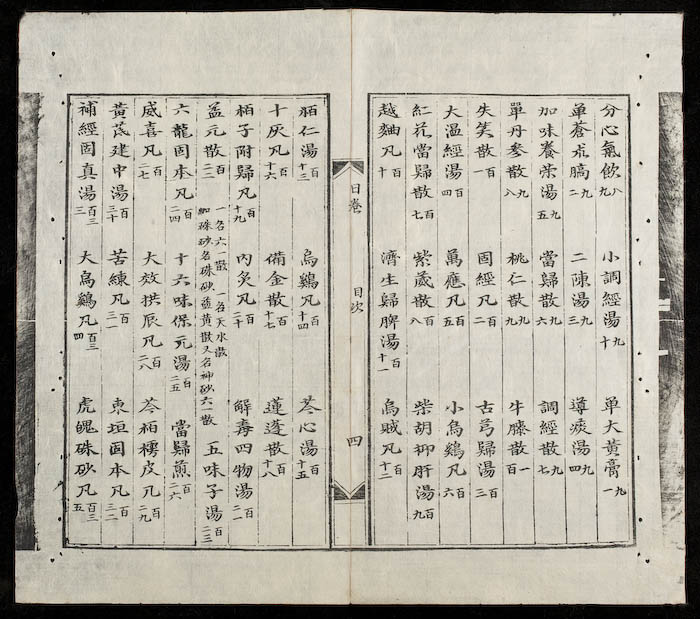 分心氣飲八九　小調經湯九十　單大黃膏九一
單蒼朮膏九二　二陳湯九三　導痰湯九四
加味養荣湯九五　當歸散九六　調經散九七
單丹參散九八　桃仁散九九　牛膝散一百
失笑散百一　固經凡百二　古芎歸湯百三
大溫經湯百四　萬應凡百五　小烏鷄凡百六
紅花當歸散百七　紫葳散百八　柴胡抑肝湯百九
越麯凡百十　濟生歸脾湯百十一　烏賊凡百十二
目卷　目次　四
栢仁湯百十三　烏鷄凡百十四　苓心湯百十五
十灰凡百十六　備金散百十七　蓮蓬散百十八
栢子附歸凡百十九　內灸凡百二十　解毒四物湯百二一
益元散百二二　一名六一散　一名天水散　加硃砂名硃砂益黃散又名神砂六一散　五味子湯百二三
六龍固本凡百二四　十六味保元湯百二五　當歸煎百二六
威喜凡百二七　大效拱辰凡百二八　芩栢樗皮凡百二九
黃茋建中湯百三十　苦練凡百三一　東垣固本凡百三二
補經固真湯百三三　大烏鷄凡百三四　虎魄硃砂凡百三五